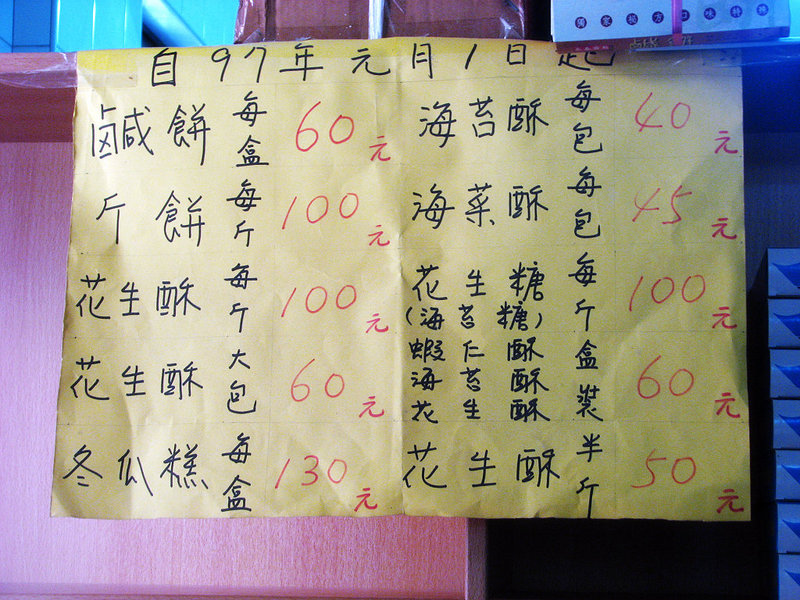 自97年元月1日起
鹹餅 每盒 60元
斤餅 每斤 100元
花生酥 每斤 100元
花生酥 大包 60元
冬瓜糕 每盒 130元
海苔酥 每包 40元
海菜酥 每包 45元
花生糖
(海苔糖) 每斤 100元
蝦仁酥
海苔酥
花生酥 盒裝 60元
花生酥 半斤 50元